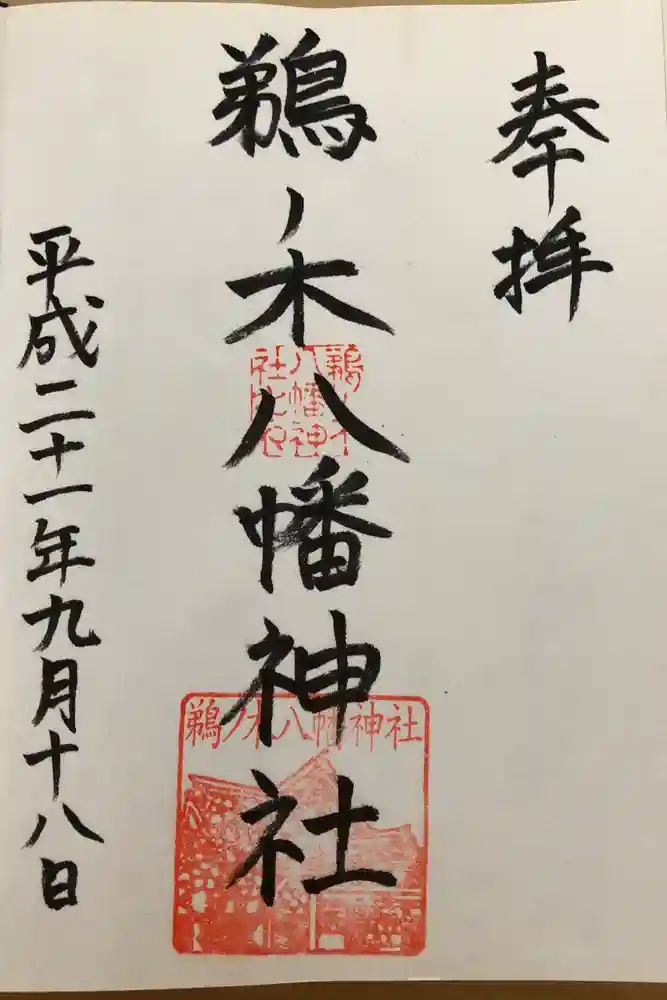 奉拝
鵜ノ木八幡神社
鵜ノ木
八幡神
社之印
鵜ノ木八幡神社
平成二十一年九月十八日